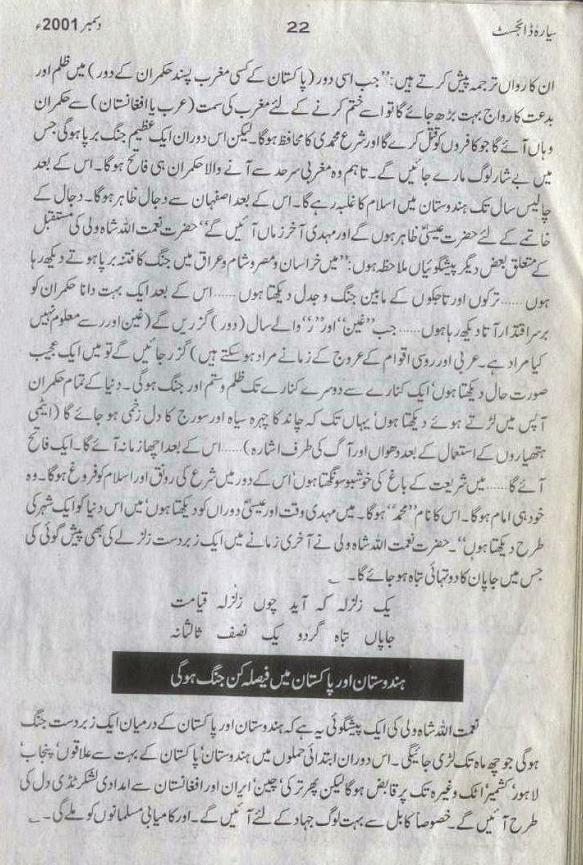 سیارہ ڈائجسٹ 22 دسمبر 2001ء
ان کا رواں ترجمہ پیش کرتے ہیں: ”جب اسی دور (پاکستان کے کسی مغرب پسند حکمران کے دور) میں ظلم اور
بدعت کا رواج بہت بڑھ جائے گا تو اسے ختم کرنے کے لئے مغرب کی سمت (عرب یا افغانستان) سے حکمران
وہاں آئے گا جو کافروں کو قتل کرے گا اور شرع محمدی کا محافظ ہوگا۔ لیکن اس دوران ایک عظیم جنگ برپا ہوگی جس
میں بے شمار لوگ مارے جائیں گے۔ تاہم وہ مغربی سرحد سے آنے والا حکمران ہی فاتح ہوگا۔ اس کے بعد
چالیس سال تک ہندوستان میں اسلام کا غلبہ رہے گا۔ اس کے بعد اصفہان سے دجال ظاہر ہوگا۔ دجال کے
خاتمے کے لئے حضرت عیسیٰؑ ظاہر ہوں گے اور مہدی آخر زماں آئیں گے“ حضرت نعمت اللہ شاہ ولی کی مستقبل
کے متعلق بعض دیگر پیشگوئیاں ملاحظہ ہوں: ”میں خراسان و مصر و شام و عراق میں جنگ کا فتنہ برپا ہوتے دیکھ رہا
ہوں ...... ترکوں اور تاجکوں کے مابین جنگ و جدل دیکھتا ہوں ...... اس کے بعد ایک بہت دانا حکمران کو
برسراقتدار آتا دیکھ رہا ہوں ...... جب ”غین“ اور ”ر“ والے سال (دور) گزریں گے (غین اور رے معلوم نہیں
کیا مراد ہے۔ عربی اور روسی اقوام کے عروج کے زمانے مراد ہو سکتے ہیں) گزر جائیں گے تو میں ایک عجیب
صورت حال دیکھتا ہوں‘ ایک کنارے سے دوسرے کنارے تک ظلم و ستم اور جنگ ہوگی۔ دنیا کے تمام حکمران
آپس میں لڑتے ہوئے دیکھتا ہوں‘ یہاں تک کہ چاند کا چہرہ سیاہ اور سورج کا دل زخمی ہو جائے گا (ایٹمی
ہتھیاروں کے استعمال کے بعد دھواں اور آگ کی طرف اشارہ) ...... اس کے بعد اچھا زمانہ آئے گا۔ ایک فاتح
آئے گا ...... میں شریعت کے باغ کی خوشبو سونگھتا ہوں‘ اس کے دور میں شرع کی رونق اور اسلام کو فروغ ہوگا۔ وہ
خود ہی امام ہوگا۔ اس کا نام ”محمد“ ہوگا۔ میں مہدی وقت اور عیسیٰؑ دوراں کو دیکھتا ہوں‘ میں اس دنیا کو ایک شہر کی
طرح دیکھتا ہوں“۔ حضرت نعمت اللہ شاہ ولی نے آخری زمانے میں ایک زبردست زلزلے کی بھی پیش گوئی کی
جس میں جاپان کا دو تہائی تباہ ہو جائے گا۔ ؎
یک زلزلہ کہ آید چوں زلزلہ قیامت
جاپاں تباہ گردو یک نصف ثالثانہ
ہندوستان اور پاکستان میں فیصلہ کن جنگ ہوگی
نعمت اللہ شاہ ولی کی ایک پیشگوئی یہ ہے کہ ہندوستان اور پاکستان کے درمیان ایک زبردست جنگ
ہوگی جو چھ ماہ تک لڑی جائیگی۔ اس دوران ابتدائی حملوں میں ہندوستان‘ پاکستان کے بہت سے علاقوں‘ پنجاب‘
لاہور‘ کشمیر‘ اٹک وغیرہ تک پر قابض ہوگا لیکن پھر ترکی‘ چین‘ ایران اور افغانستان سے امدادی لشکر ٹڈی دل کی
طرح آئیں گے۔ خصوصاً کابل سے بہت لوگ جہاد کے لئے آئیں گے۔ اور کامیابی مسلمانوں کو ملے گی۔ ؎